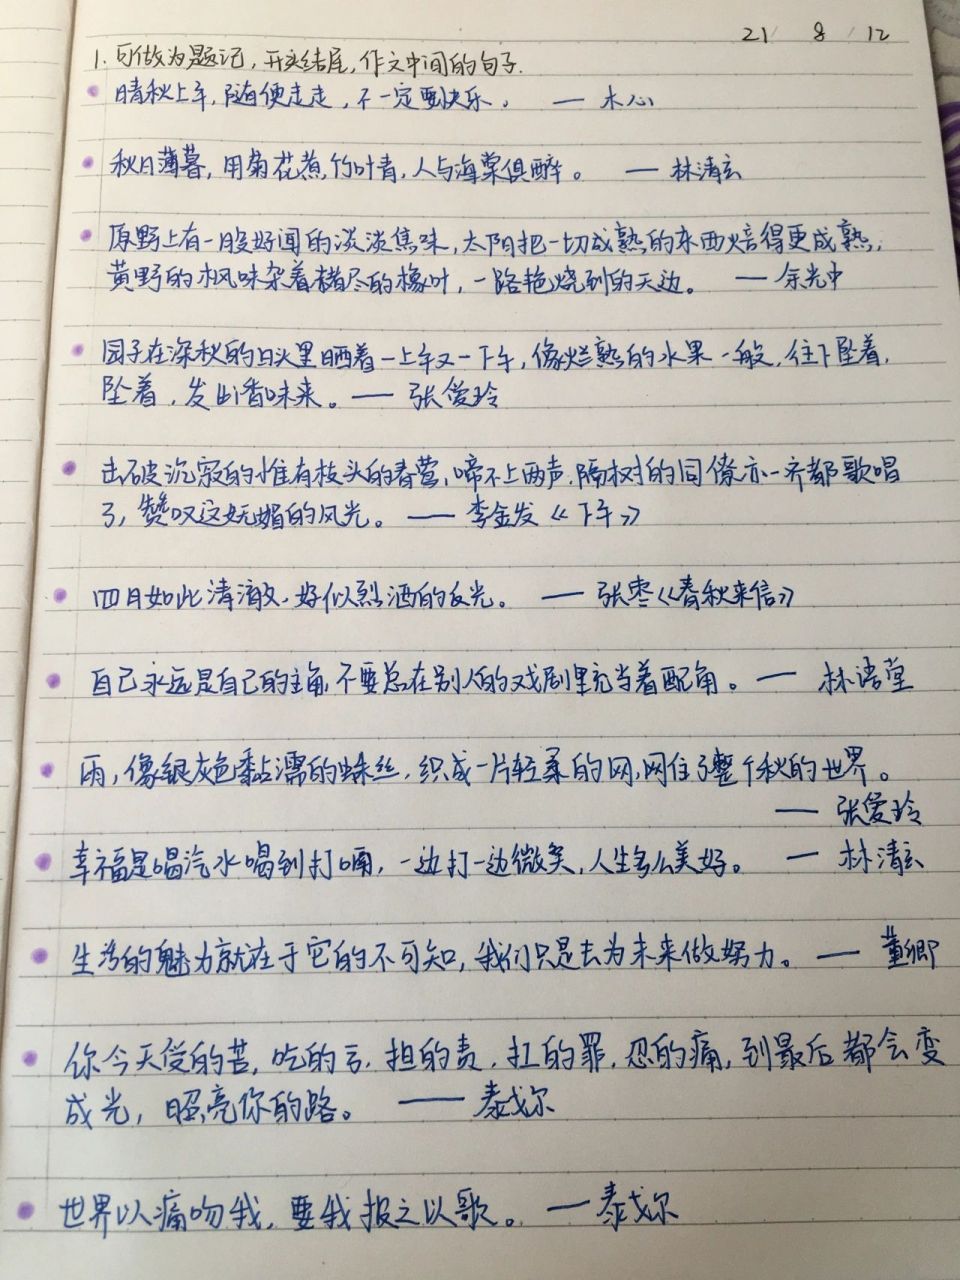 21 / 8 / 12
1. 可做为题记，开头结尾，作文中间的句子.
晴秋上午，随便走走，不一定要快乐。 — 木心
秋日薄暮，用菊花煮竹叶青，人与海棠俱醉。 — 林清玄
原野上有一股好闻的淡淡焦味，太阳把一切成熟的东西焙得更成熟，
黄野的枫味杂着赭尽的橡叶，一路艳烧到的天边。 — 余光中
园子在深秋的日头里晒着一上午又一下午，像烂熟的水果一般，往下坠着，
坠着，发出香味来。 — 张爱玲
击破沉寂的惟有枝头的春莺，啼不上两声，隔树的同僚亦一齐都歌唱
了，赞叹这妩媚的风光。 — 李金发《下午》
四月如此清澈，好似烈酒的反光。 — 张枣《春秋来信》
自己永远是自己的主角，不要总在别人的戏剧里充当着配角。 — 林语堂
雨，像银灰色黏濡的蛛丝，织成一片轻柔的网，网住了整个秋的世界。
— 张爱玲
幸福是喝汽水喝到打嗝，一边打一边微笑，人生多么美好。 — 林清玄
生活的魅力就在于它的不可知，我们只是去为未来做努力。 — 董卿
你今天受的苦，吃的亏，担的责，扛的罪，忍的痛，到最后都会变
成光，照亮你的路。 — 泰戈尔
世界以痛吻我，要我报之以歌。 — 泰戈尔